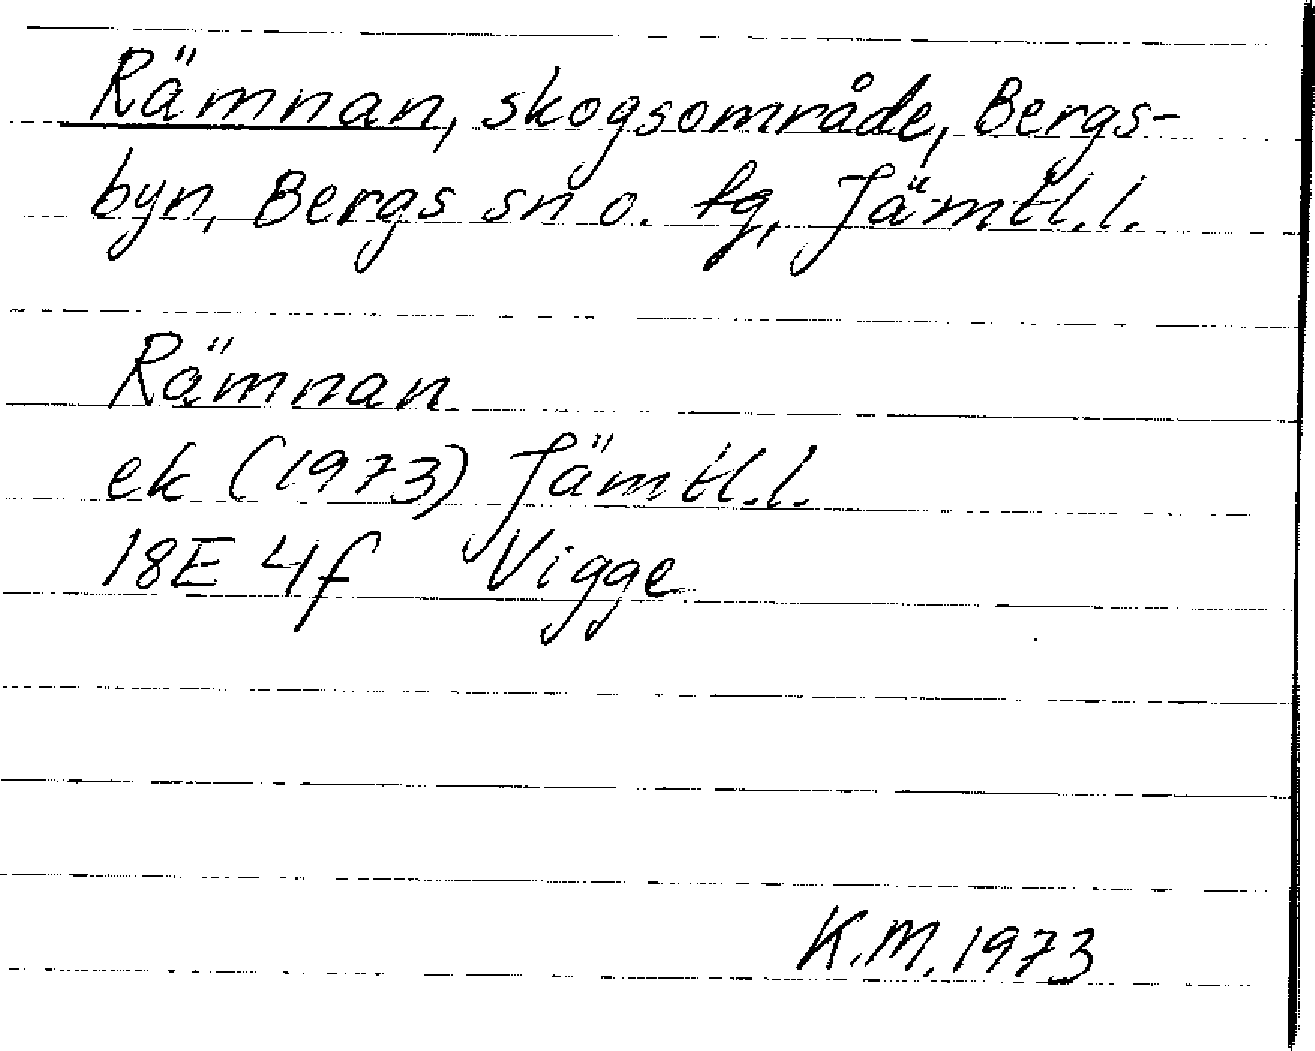 Rämnan, skogsområde, Bergs-
byn, Bergs sn o. tg, Jämtl.l.
Rämnan
ek (1973) Jämtl.l.
18E 4f Vigge
K.M. 1973